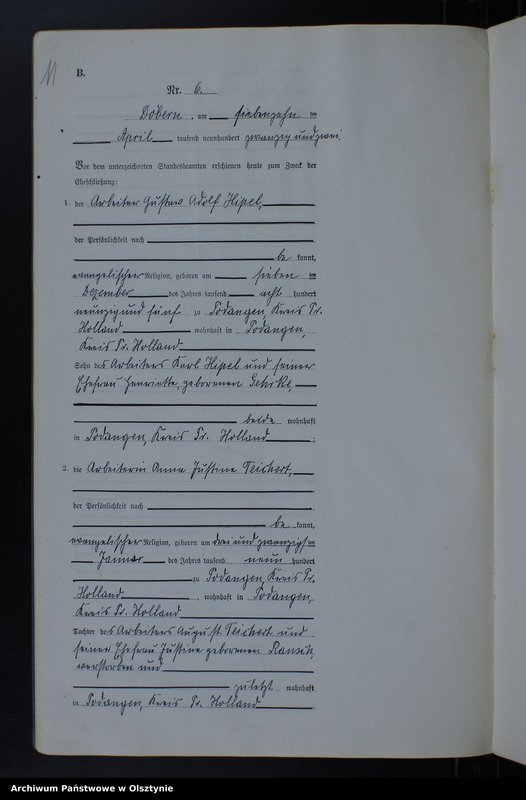 11
B.
Nr. 6.
Döbern, am siebenzehn ten
April tausend neunhundert zwanzig und zwei.
Vor dem unterzeichneten Standesbeamten erschienen heute zum Zweck der
Eheschließung:
1. der Arbeiter Gustav Adolf Hipel,
der Persönlichkeit nach
be kannt,
evangelischer Religion, geboren am sieben ten
Dezember des Jahres tausend acht hundert
neunzig und fünf zu Podangen, Kreis Pr.
Holland wohnhaft in Podangen,
Kreis Pr. Holland
Sohn des Arbeiters Karl Hipel und seiner
Ehefrau Henriette, geborenen
beide wohnhaft
in Podangen, Kreis Pr. Holland.
2. die Arbeiterin Anna Justine Teichert,
der Persönlichkeit nach
be kannt,
evangelischer Religion, geboren am drei und zwanzigs ten
Januar des Jahres tausend neun hundert
zu Podangen, Kreis Pr.
Holland, wohnhaft in Podangen,
Kreis Pr. Holland
Tochter des Arbeiters August Teichert und
seiner Ehefrau Justine geborenen
verstorben und
zuletzt wohnhaft
in Podangen, Kreis Pr. Holland
Archiwum Państwowe w Olsztynie